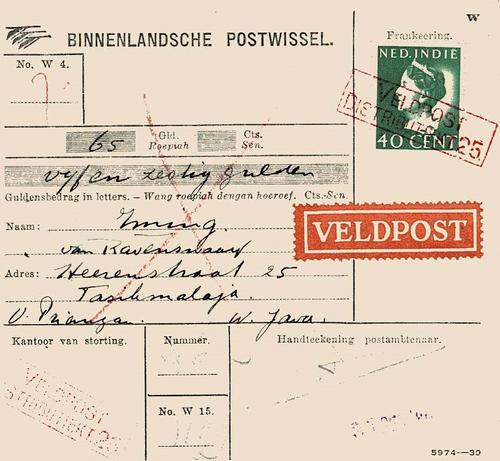 W
BINNENLANDSCHE POSTWISSEL.
Frankeering.
No. W 4.
NED. INDIE
40 CENT
VELDPOST
DISTRIBUTIEKT. 25
65 Gld. Cts.
Roepiah Sen.
vyf en zestig gulden
Guldensbedrag in letters. – Wang roepiah dengan hoeroef. Cts.-Sen.
VELDPOST
Naam:
van Ravenswaay
Adres: Heerenstraat 25
Tasikmalaja.
O. Priangan. W. Java.
Kantoor van storting.
Nummer.
Handteekening postambtenaar.
VELDPOST
No. W 15.
5974—39